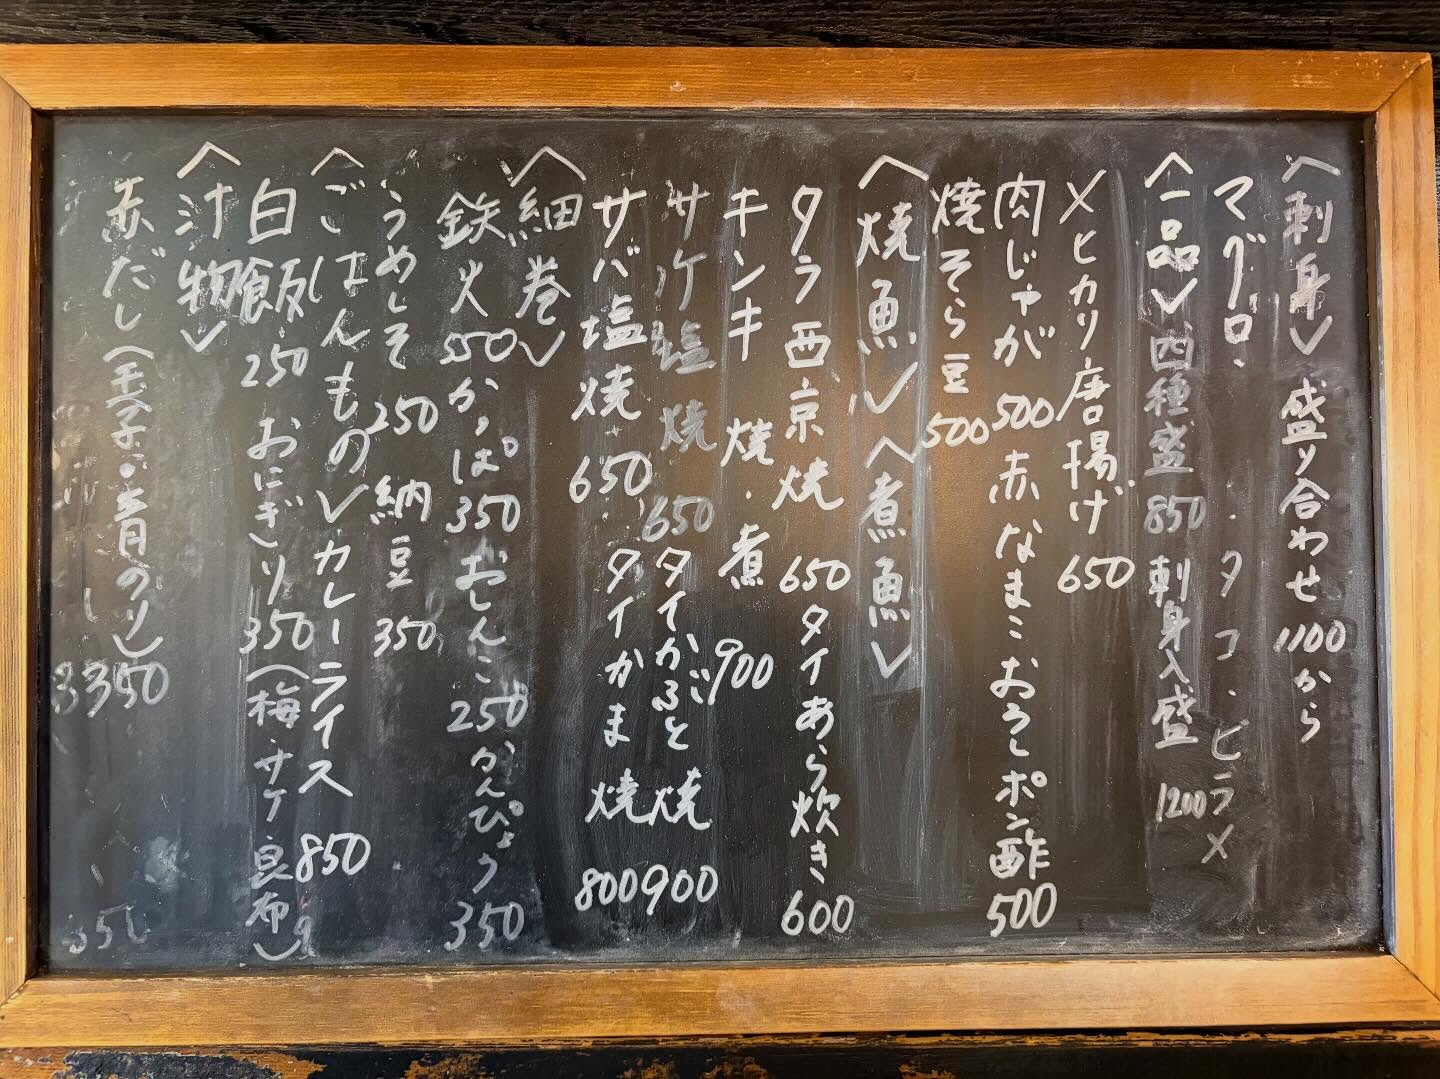 〈刺身〉盛り合わせ 1100から
マグロ・タコ・ヒラメ
〈一品〉四種盛 850 刺身入盛 1200
メヒカリ唐揚げ 650
肉じゃが 500 赤なまこおろしポン酢 500
焼そら豆 500
〈焼魚〉〈煮魚〉
タラ西京焼 650 タイあら炊き 600
キンキ 焼・煮 900
サケ塩焼 650 タイかぶと焼 900
サバ塩焼 650 タイかま焼 800
〈細巻〉
鉄火 550 かっぱ 350 おしんこ 250 かんぴょう 350
うめしそ 250 納豆 350
〈ごはんもの〉カレーライス 850
白飯 250 おにぎり 350 (梅・サケ・昆布)
〈汁物〉
赤だし(玉子・青のり) 350